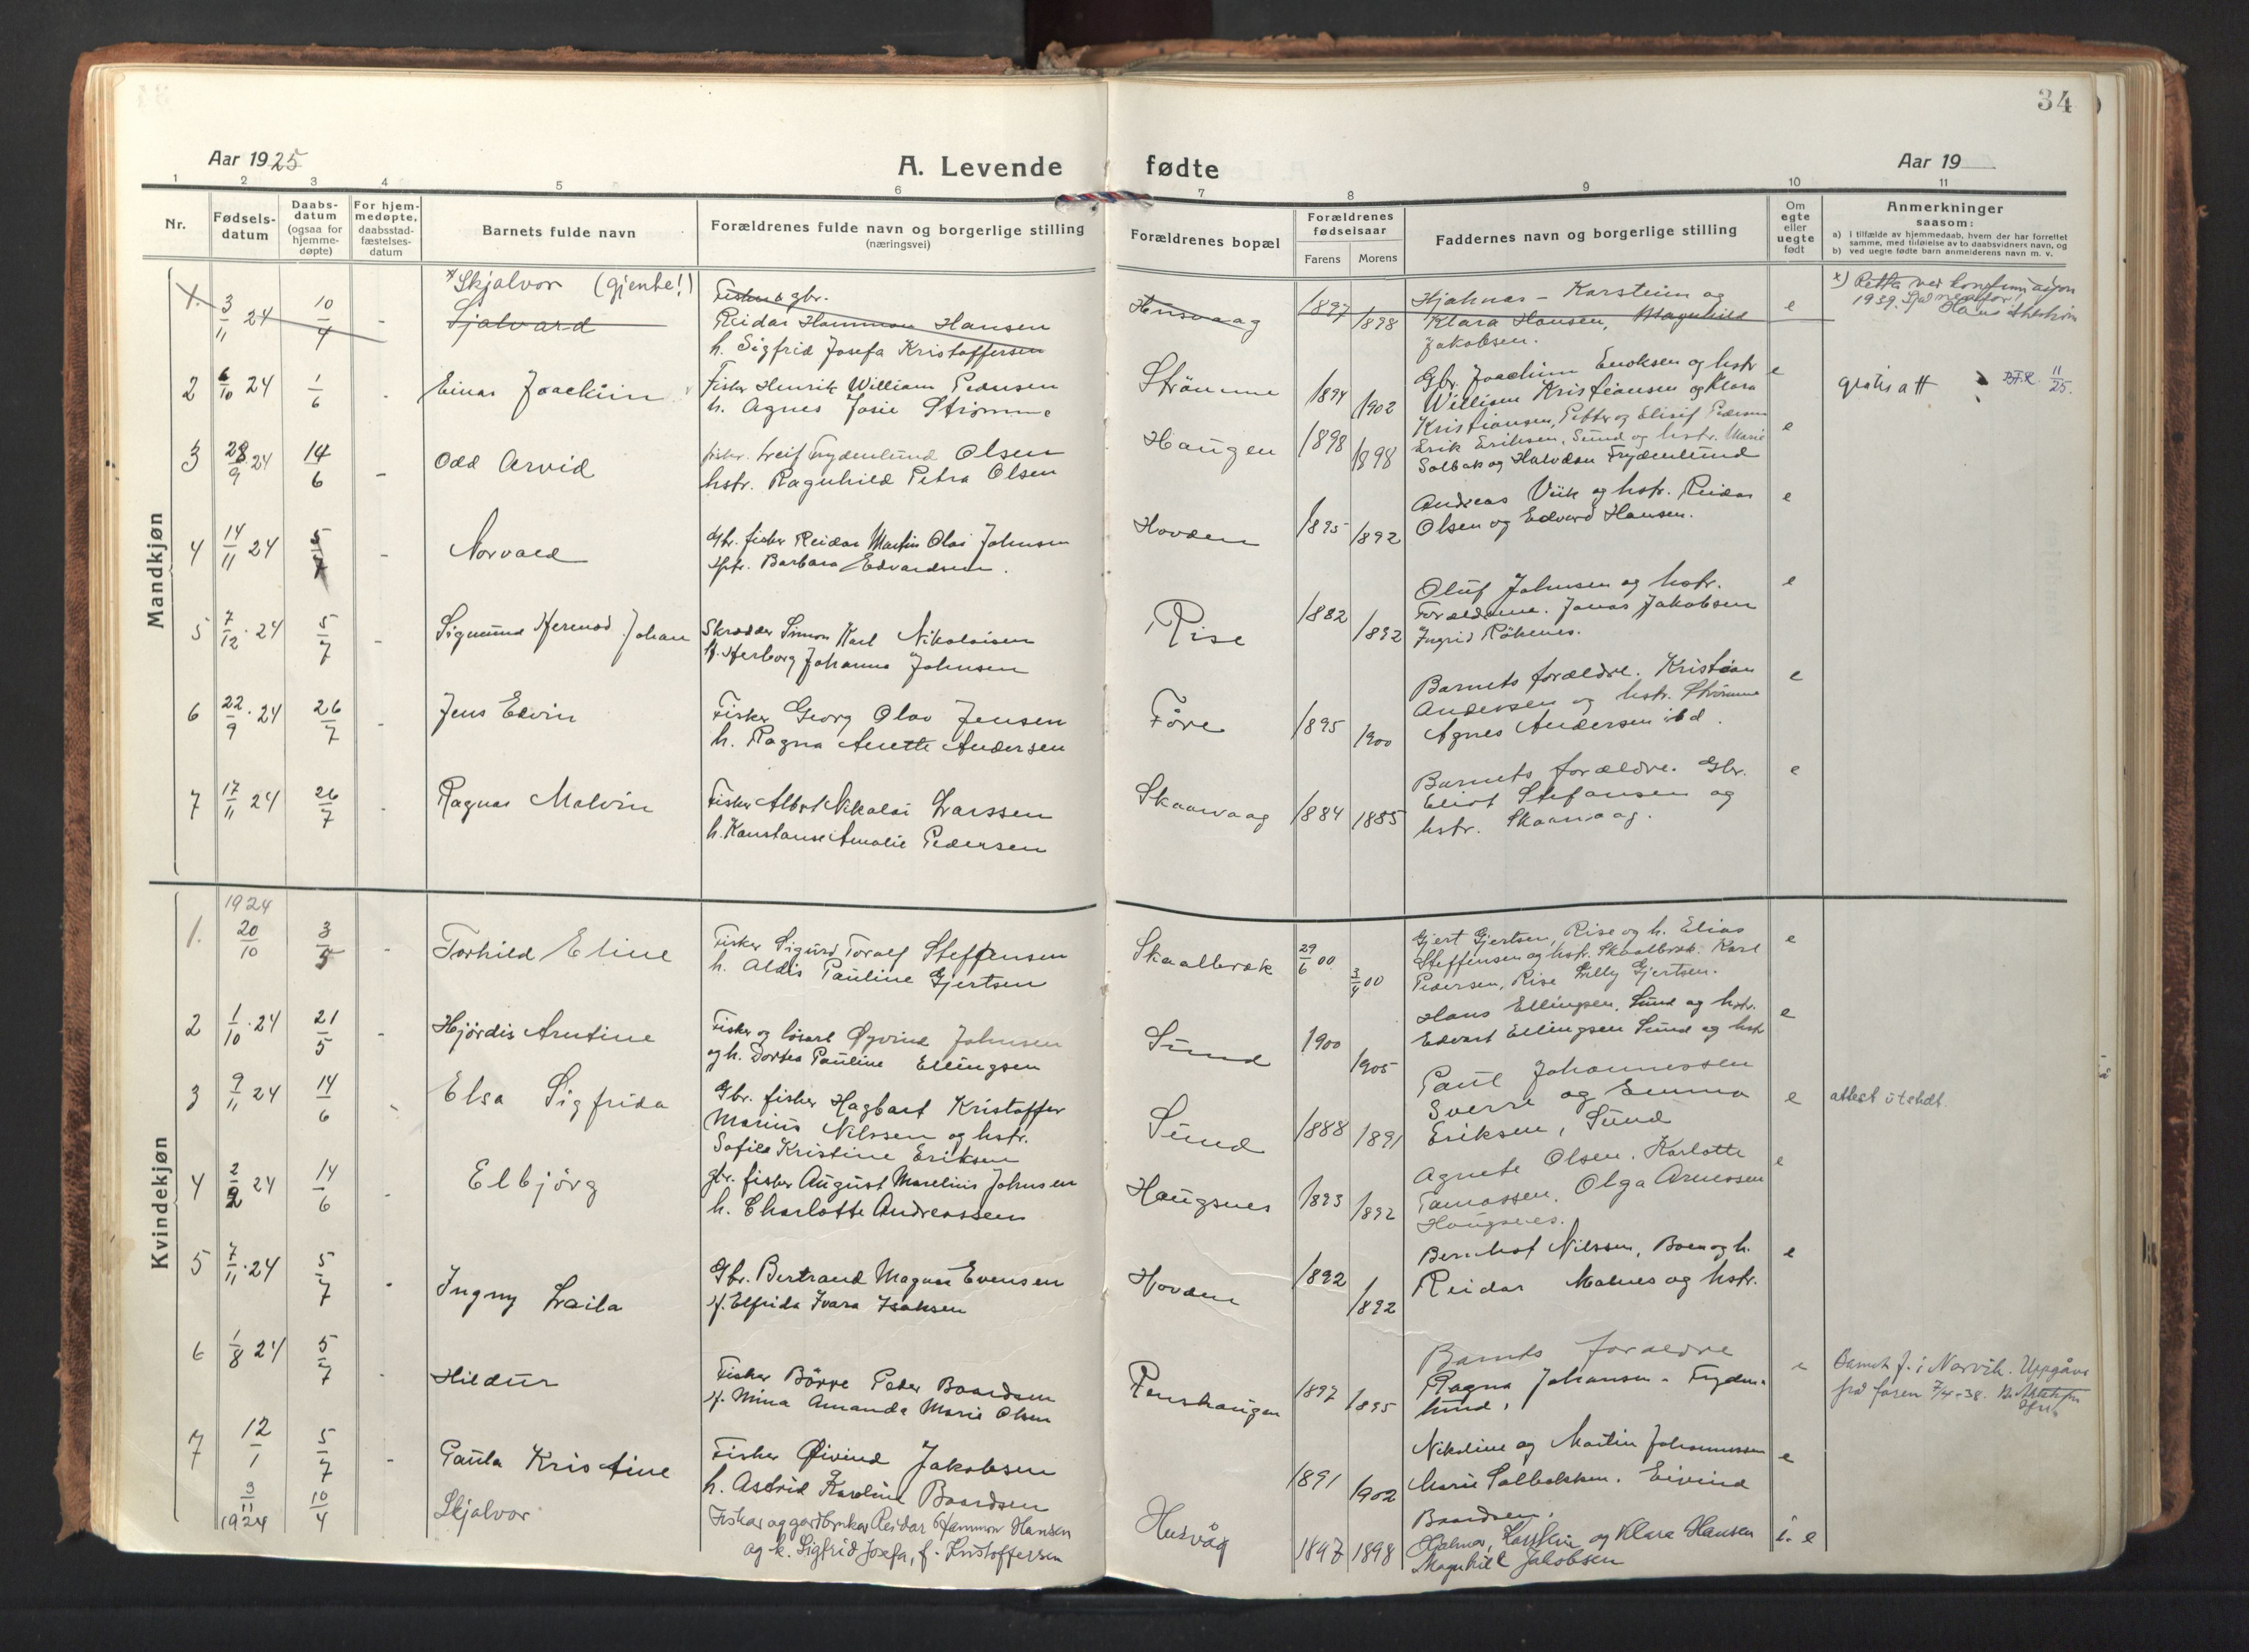 34
Aar 1925
A. Levende fødte
Aar 19
1 2 3 4 5 6 7 8 9 10 11
Nr.
Fødsels-
datum
Daabs-
datum
(ogsaa for
hjemme-
døpte)
For hjem-
medøpte,
daabsstad-
fæstelses-
datum
Barnets fulde navn
Forældrenes fulde navn og borgerlige stilling
(næringsvei)
Forældrenes bopæl
Forældrenes
fødselsaar
Farens Morens
Faddernes navn og borgerlige stilling
Om
egte
eller
uegte
født
Anmerkninger
saasom:
a) i tilfælde av hjemmedaab, hvem der har forrettet
samme, med tilføielse av to daabsvidners navn, og
b) ved uegte fødte barn anmelderens navn m. v.
Mandkjøn
1. 3/11 24 10/4 -
*Skjalvor (gjente!)
Sjalvard
Fisker og gbr.
Reidar Hammon Hansen
h. Sigfrid Josefa Kristoffersen
Husvaag 1897 1898
Hjalmar - Karsteinn og
Klara Hansen, Magnhild
Jakobsen.
e
x) Retta ved konfirmasjon
1939.
2 6/10 24 1/6 -
Einar Joachim
Fisker Henrik William Pedersen
h. Agnes Josie Strømme
Strömme 1894 1902
Gbr. Joachim Enoksen og hstr
William Kristiansen og Klara
Kristiansen, Petter og Elisif Pedersen
e
gratis att 11/25.
3 28/9 24 14/6 -
Odd Arvid
fisker. Leif Frydenlund Olsen
hstr. Ragnhild Petra Olsen
Haugen 1898 1898
Erik Eriksen, Sund og hstr. Marie
Solbak og Halvdan Frydenlund
e
4 14/11 24 5/7 -
Norvald
Gbr. fisker Reidar Martin Olai Johnsen
Barbara Edvardsen.
Hovden 1895 1892
Andreas Viik og hstr. Reidar
Olsen og Edvard Hansen.
e
5 7/12 24 5/7 -
Sigmund Hermod Johan
Skrædder Simon Karl Nikolaisen
h. Herborg Johanna Johnsen
Rise 1882 1892
Oluf Johnsen og hstr.
Forældrene. Jonas Jakobsen
Ingrid Röhenes.
e
6 22/9 24 26/7 -
Jens Edvin
Fisker Georg Olav Jensen
h. Ragna Anette Andersen
Före 1895 1900
Barnets forældre. Kristian
Andersen og hstr. Strömme
Agnes Andersen ibd.
e
7 17/11 24 26/7 -
Ragnar Malvin
Fisker Albert Nikolai Larssen
h. Konstanse Amalie Pedersen
Skaarvaag 1884 1885
Barnets forældre. Gbr.
Eliot Stefansen og
hstr. Skaarvaag.
e
Kvindekjøn
1924
1. 20/10 3/5 -
Torhild Eline
Fisker Sigurd Toralf Steffensen
h. Aldis Pauline Gjertsen
Skaalbrek 29/6 00 3/4 00
Gjert Gjertsen, Rise og h. Elias
Steffensen og hstr. Skaalbrek. Karl
Pedersen, Rise Willy Gjertsen.
e
2 1/10 24 21/5 -
Hjördis Arntine
Fisker og løsarb Øyvind Johnsen
og h. Dortea Pauline Ellingsen
Sund 1900 1905
Hans Ellingsen, Sund og hstr.
Edvart Ellingsen Sund og hstr
e
3 9/11 24 14/6
Elsa Sigfrida
Gbr. fisker Hagbart Kristoffer
Marius Nilssen og hstr.
Sofile Kristine Eriksen
Sund 1888 1891
Paul Johannessen
Sverre og Emma
Eriksen, Sund
e
attest utstedt.
4 2/2 24 14/6 -
Elbjörg
gbr. fisker August Marelius Johnsen
h. Charlotte Andreassen
Haugsnes 1893 1892
Agnete Olsen. Karlotte
Tomassen. Olga Arnessen
Haugsnes.
e
5 7/11 24 5/7 -
Ingny Laila
Gbr. Bertrand Magnus Evensen
h. Elfrida Ivara Isaksen
Hovden 1892 1892
Bernhof Nilssen, Boen og h.
Reidar Malnes og hstr.
e
6 1/8 24 5/7 -
Hildur
Fisker Börre Peder Baardsen
h. Mina Amanda Marie Olsen
Renshaugen 1897 1895
Barnets forældre
Ragna Johansen - Fryden-
lund.
e
Barnet f. i Narvik. Uppgåve
frå faren 7/4-38.
7 12/1 5/7 -
Paula Kristine
Fisker Øivind Jakobsen
h. Astrid Karoline Baardsen
1891 1902
Nikoline og Martin Johannessen
Marie Solbakken. Eivind
Baardsen.
e
3/11 1924 10/4
Skjalvor
Fiskar og gardbrukar Reidar Hammon Hansen
og k. Sigfrid Josefa, f. Kristoffersen
Husvåg 1897 1898
Hjalmar, Karstein og Klara Hansen
Magnhild Jakobsen
e